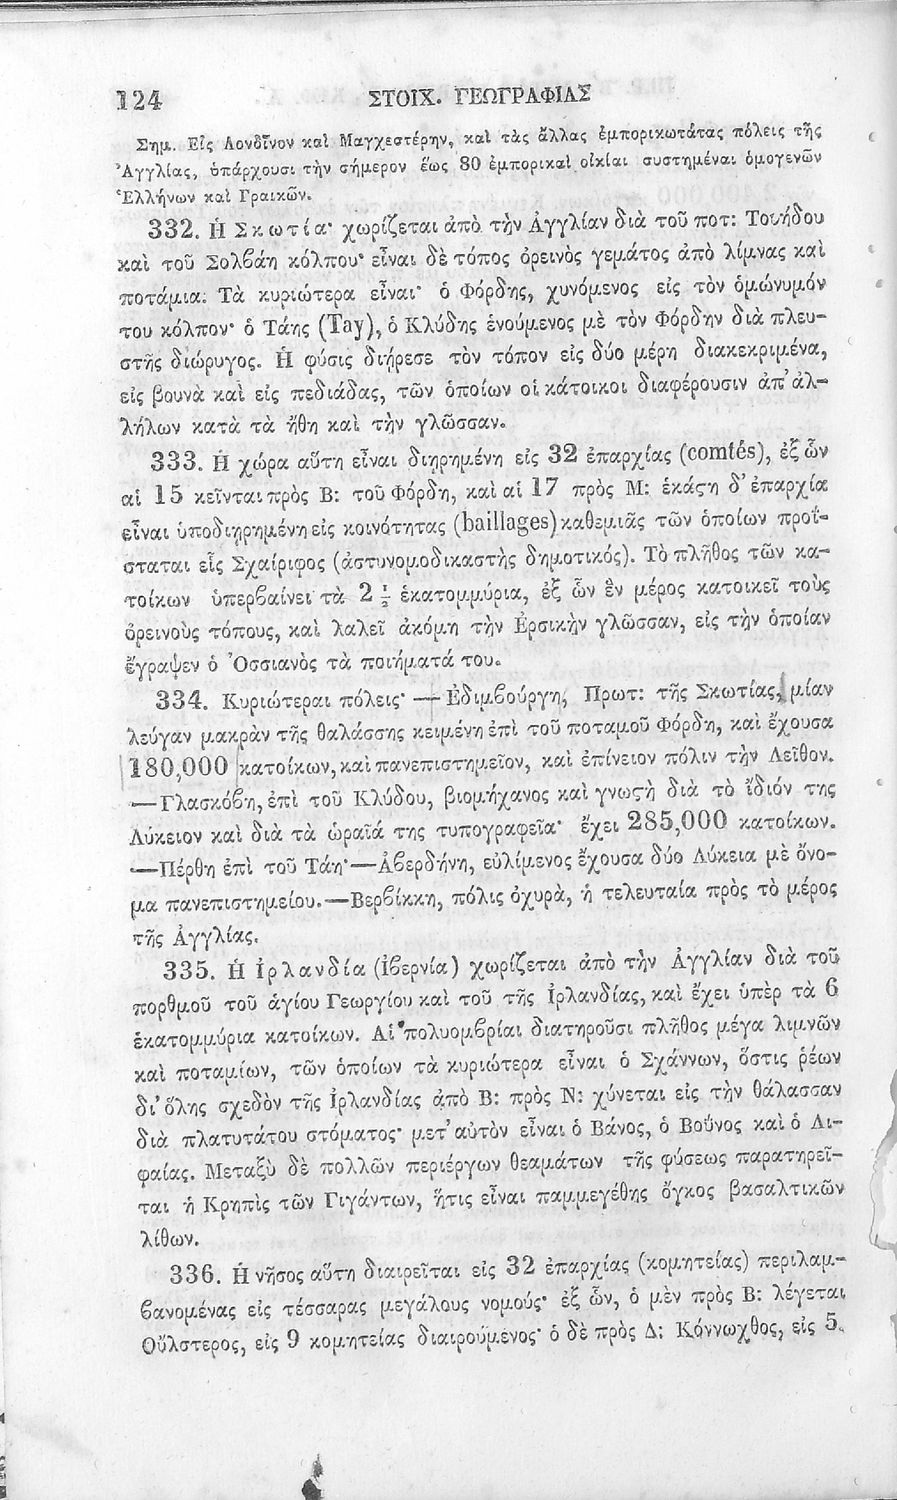 124 ΣΤΟΙΧ. ΓΕΩΓΡΑΦΙΑΣ
Σημ. Εἰς Λονδῖνον καὶ Μαγχεστέρην, καὶ τὰς ἄλλας ἐμπορικωτάτας πόλεις τῆς
Ἀγγλίας, ὑπάρχουσι τὴν σήμερον ἕως 80 ἐμπορικαὶ οἰκίαι συστημέναι ὁμογενῶν
Ἑλλήνων καὶ Γραικῶν.
332. Ἡ Σκωτία· χωρίζεται ἀπὸ τὴν Ἀγγλίαν διὰ τοῦ ποτ: Τουήδου
καὶ τοῦ Σολβάη κόλπου· εἶναι δὲ τόπος ὀρεινὸς γεμάτος ἀπὸ λίμνας καὶ
ποτάμια. Τὰ κυριώτερα εἶναι· ὁ Φόρδης, χυνόμενος εἰς τὸν ὁμώνυμόν
του κόλπον· ὁ Τάης (Tay), ὁ Κλύδης ἑνούμενος μὲ τὸν Φόρδην διὰ πλευ-
στῆς διώρυγος. Ἡ φύσις διῄρεσε τὸν τόπον εἰς δύο μέρη διακεκριμένα,
εἰς βουνὰ καὶ εἰς πεδιάδας, τῶν ὁποίων οἱ κάτοικοι διαφέρουσιν ἀπ' ἀλ-
λήλων κατὰ τὰ ἤθη καὶ τὴν γλῶσσαν.
333. Ἡ χώρα αὕτη εἶναι διῃρημένη εἰς 32 ἐπαρχίας (comtés), ἐξ ὧν
αἱ 15 κεῖνται πρὸς Β: τοῦ Φόρδη, καὶ αἱ 17 πρὸς Μ: ἑκάϛη δ' ἐπαρχία
εἶναι ὑποδιῃρημένη εἰς κοινότητας (baillages) καθεμιᾶς τῶν ὁποίων προΐ-
σταται εἷς Σχαίριφος (ἀστυνομοδικαστὴς δημοτικός). Τὸ πλῆθος τῶν κα-
τοίκων ὑπερβαίνει τὰ 2 ½ ἑκατομμύρια, ἐξ ὧν ἓν μέρος κατοικεῖ τοὺς
ὀρεινοὺς τόπους, καὶ λαλεῖ ἀκόμη τὴν Ἐρσικὴν γλῶσσαν, εἰς τὴν ὁποίαν
ἔγραψεν ὁ Ὀσσιανὸς τὰ ποιήματά του.
334. Κυριώτεραι πόλεις· — Ἐδιμβούργη, Πρωτ: τῆς Σκωτίας, μίαν
λεύγαν μακρὰν τῆς θαλάσσης κειμένη ἐπὶ τοῦ ποταμοῦ Φόρδη, καὶ ἔχουσα
180,000 κατοίκων, καὶ πανεπιστημεῖον, καὶ ἐπίνειον πόλιν τὴν Λεῖθον.
—Γλασκόβη, ἐπὶ τοῦ Κλύδου, βιομήχανος καὶ γνωϛὴ διὰ τὸ ἴδιόν της
Λύκειον καὶ διὰ τὰ ὡραῖά της τυπογραφεῖα· ἔχει 285,000 κατοίκων.
—Πέρθη ἐπὶ τοῦ Τάη·—Ἀβερδήνη, εὐλίμενος ἔχουσα δύο Λύκεια μὲ ὄνο-
μα πανεπιστημείου.—Βερβίκκη, πόλις ὀχυρὰ, ἡ τελευταία πρὸς τὸ μέρος
τῆς Ἀγγλίας.
335. Ἡ Ἰρλανδία (Ἰβερνία) χωρίζεται ἀπὸ τὴν Ἀγγλίαν διὰ τοῦ
πορθμοῦ τοῦ ἁγίου Γεωργίου καὶ τοῦ τῆς Ἰρλανδίας, καὶ ἔχει ὑπὲρ τὰ 6
ἑκατομμύρια κατοίκων. Αἱ πολυομβρίαι διατηροῦσι πλῆθος μέγα λιμνῶν
καὶ ποταμίων, τῶν ὁποίων τὰ κυριώτερα εἶναι ὁ Σχάννων, ὅστις ῥέων
δι' ὅλης σχεδὸν τῆς Ἰρλανδίας ἀπὸ Β: πρὸς Ν: χύνεται εἰς τὴν θάλασσαν
διὰ πλατυτάτου στόματος· μετ' αὐτὸν εἶναι ὁ Βάνος, ὁ Βοΰνος καὶ ὁ Λι-
φαίας. Μεταξὺ δὲ πολλῶν περιέργων θεαμάτων τῆς φύσεως παρατηρεῖ-
ται ἡ Κρηπὶς τῶν Γιγάντων, ἥτις εἶναι παμμεγέθης ὄγκος βασαλτικῶν
λίθων.
336. Ἡ νῆσος αὕτη διαιρεῖται εἰς 32 ἐπαρχίας (κομητείας) περιλαμ-
βανομένας εἰς τέσσαρας μεγάλους νομούς· ἐξ ὧν, ὁ μὲν πρὸς Β: λέγεται
Οὔλστερος, εἰς 9 κομητείας διαιρούμενος· ὁ δὲ πρὸς Δ: Κόννωχθος, εἰς 5.